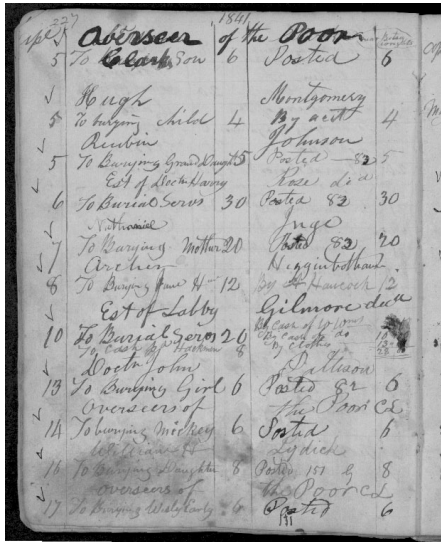 227 1841
Overseer of the Poor
5 To Clark Son 6 Posted 6
Hugh Montgomery
5 To burying child 4 By acct 4
Reubin Johnson
5 To Burying Grand Daught 5 Posted 82 5
Est of Doctr Rose de'd
6 To Burial Servs 30 Posted 82 30
Nathaniel Inge
7 To Burying Mother 20 Posted 82 20
Archer Higginbotham
8 To Burying 12 By Hancock 12
Est of Labby Gilmore decd
10 To Burial Servs 20 By Cash
To Cash 8 By Cash do
Doctr John Pattison
13 To Burying Girl 6 Posted 82 6
Overseers of the Poor CL
14 To burying Mickey 6 Posted 6
William H Lydick
16 To Burying Daughter 8 Posted 151 8
Overseers of the Poor CL
17 To Burying Wesly Early 6 Posted 6